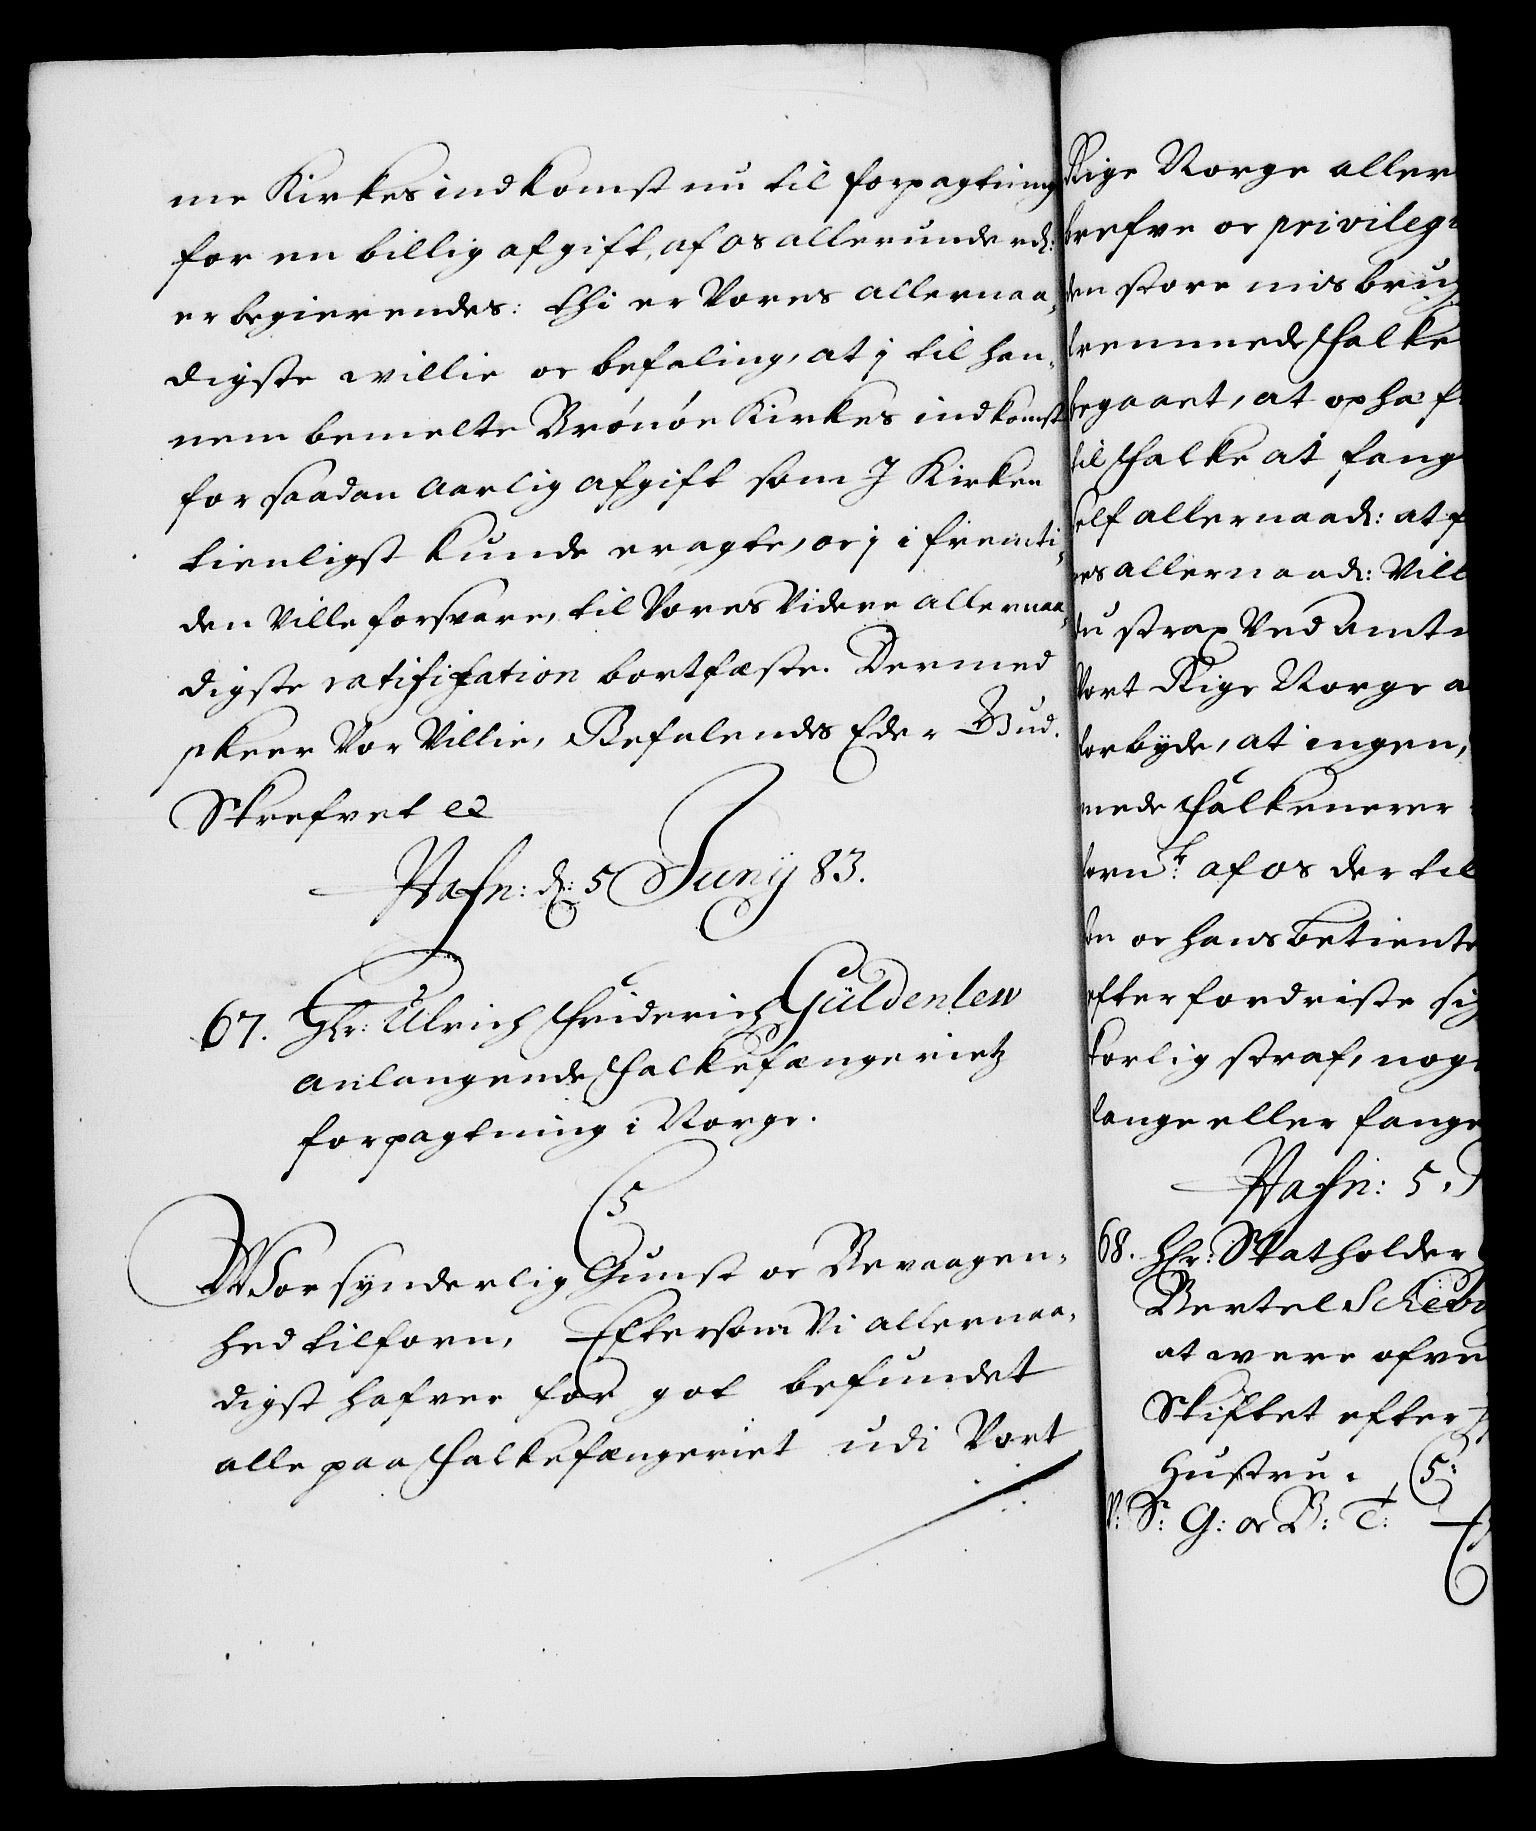 me Kirkes indkomst nu til forpagtning
for en billig afgift, af os allerunderd:
er begierendes: thi er Vores allernaa-
digste willie oc befaling, at j til han-
nem bemelte Brónóe Kirkes indkomst
for saadan Aarlig afgift som J Kirken
tienligst kunde eragte, oc j i fremti-
den Ville forsvare, til Vores Videre allernaa-
digste ratification bortfæste. Dermed
skeer Vor Villie, Befalendes Eder Gud.
Skrefvet ec
Hafn: d: 5 Juny 83.
67. Hr: Ulrich Friderich Güldenlew
anlangende Falkefængerietz
forpagtning i Norge.
C5
Wor synderlig Gunst oc Bevaagen-
hed tilforn, Eftersom Vi allernaa-
digst hafver for got befundet
alle paa Falkefængeriet udi Vort
Rige Norge aller
brefve oc privileg
den store misbrug
fremmede Falke
begaaet, at ophæf
til Falke at fang
self allernaad: at f
res allernaad: Vill
du strax Ved Amt
Vort Rige Norge a
forbyde, at ingen,
mede Falkenerer
forn: af os der til
den oc hans betiente
efter fordriste sig
torlig straf, nog
fange eller fange
Hafn: 5. J
68. Hr: Statholder
Bertel
at were ofve
Skiftet efter
Hustru. C5:
V: S: G: oc B: T: E